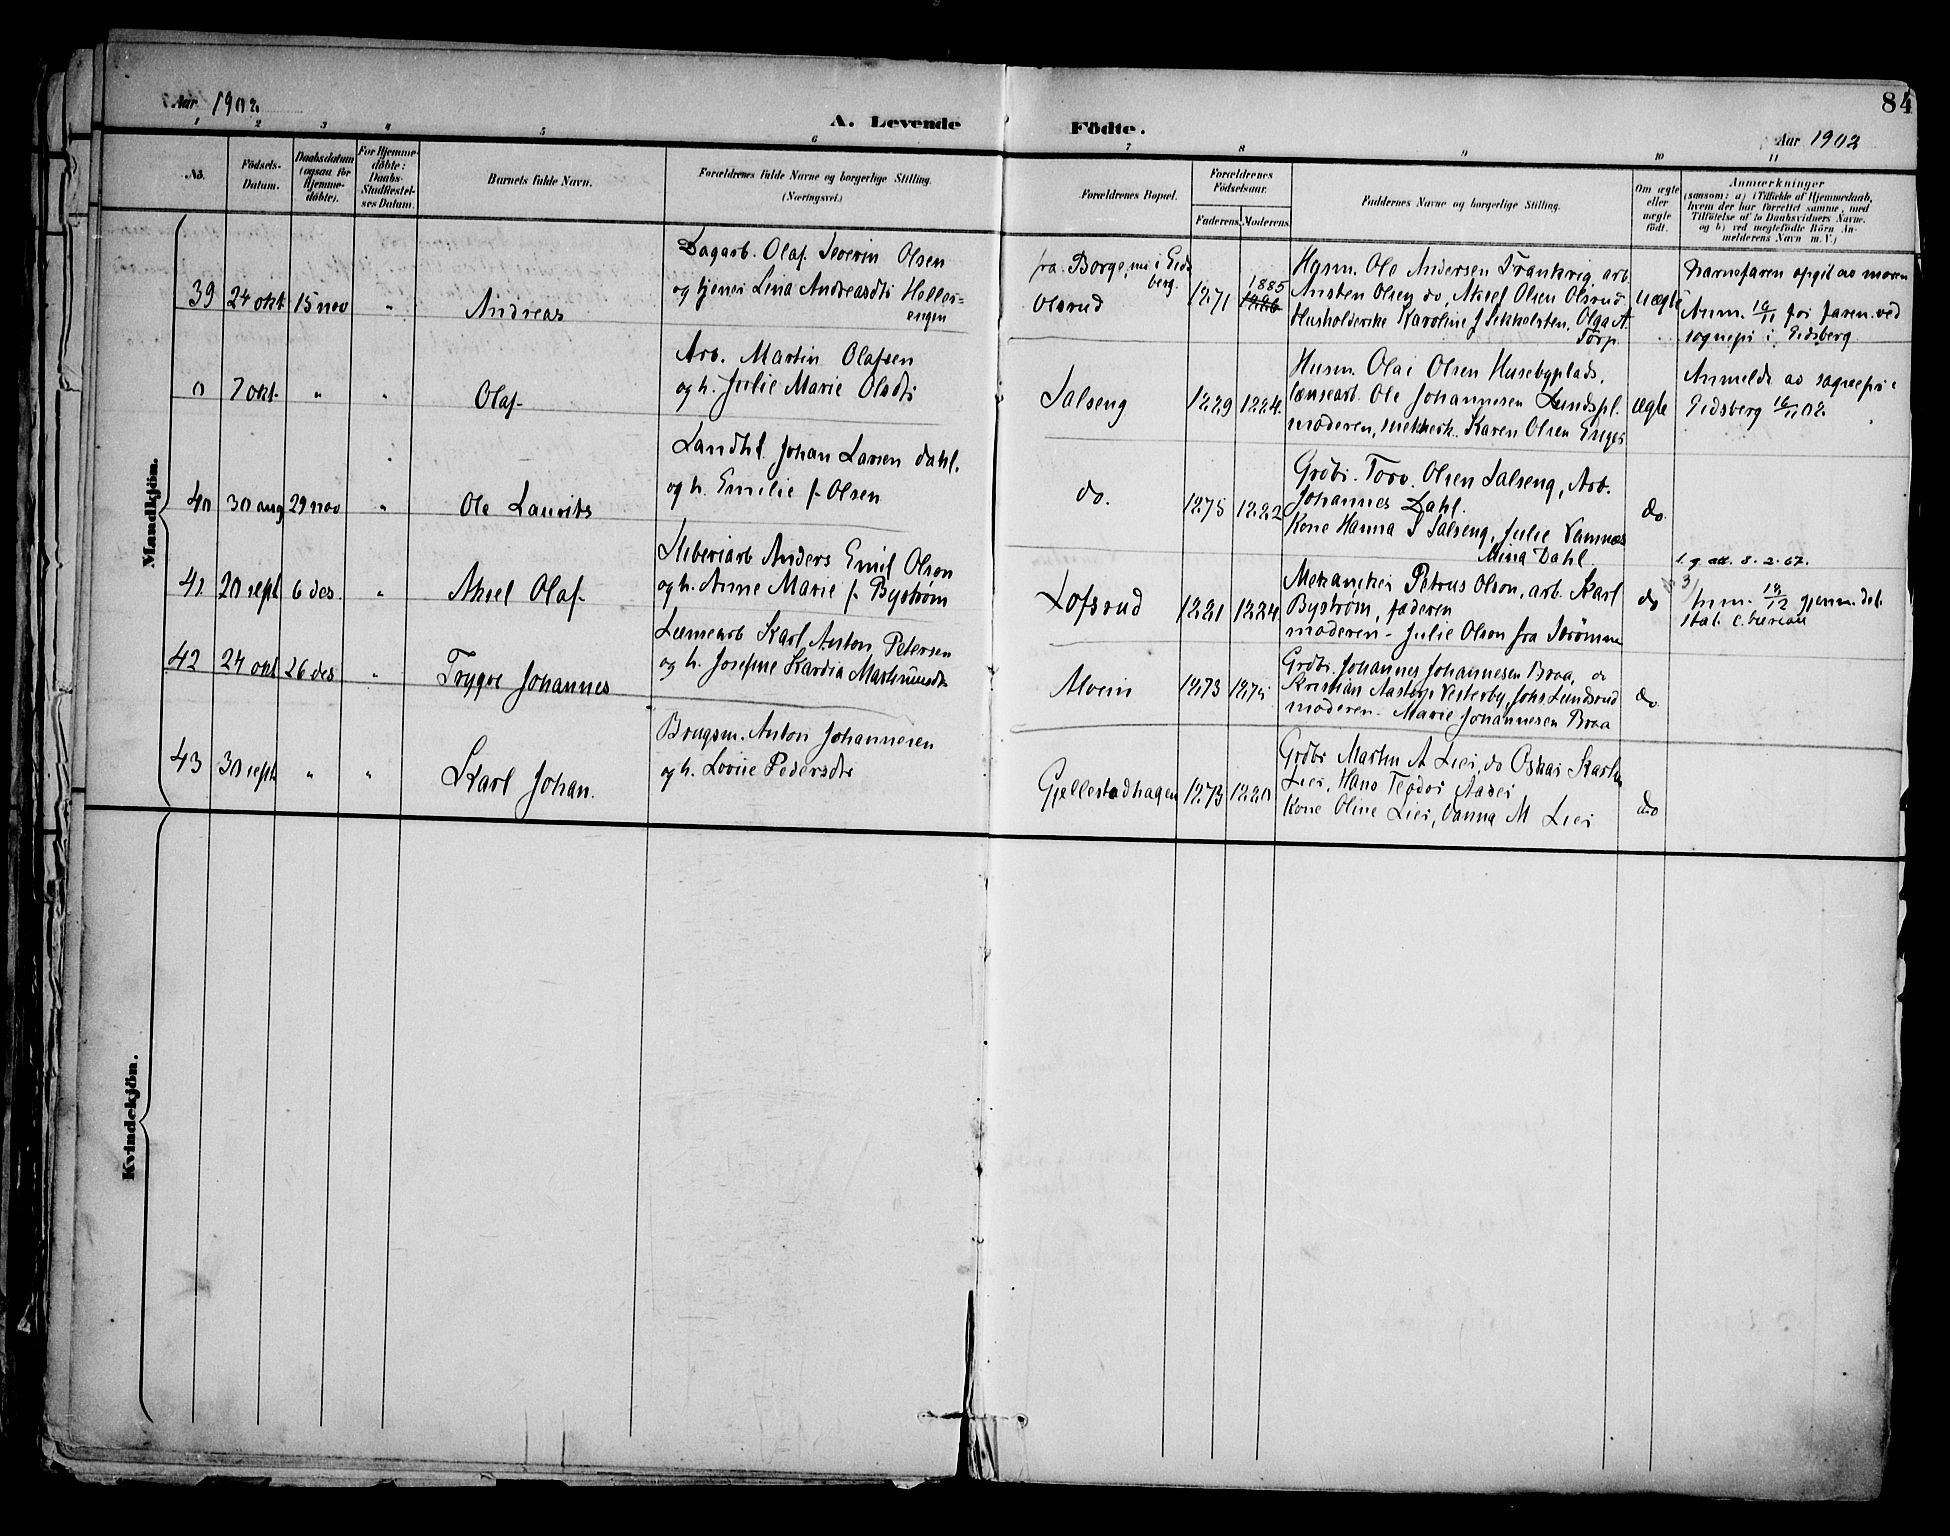 84
Aar 1902
A. Levende Födte.
Aar 1902
1 2 3 4 5 6 7 8 9 10 11
No.
Födsels-Datum.
Daabsdatum
(ogsaa for
Hjemme-
döbte).
For Hjemme-
döbte:
Daabs-
Stadfæstel-
ses Datum.
Barnets fulde Navn.
Forældrenes fulde Navne og borgerlige Stilling.
(Næringsvei.)
Forældrenes Bopæl.
Forældrenes
Födselsaar.
Faderens Moderens
Faddernes Navne og borgerlige Stilling.
Om ægte
eller
uægte
født.
Anmærkninger
(saasom: a) i Tilfælde af Hjemmedaab,
hvem der har forrettet samme, med
Tilføielse af to Daabsvidners Navne.
og b) ved uegtefødte Börn An-
melderens Navn m. V.)
Mandkjön.
39 24 okt 15 nov " Andreas
Dagarb. Olaf Severin Olsen
og tjener Lina Andreasdtr Heller-
engen
fra Borge, nu i Eids
berg.
Olsrud
1871 1885 1886
Husm. Ole Andersen Frankrig, arb.
Ansten Olsen do, Aksel Olsen Olsrud
Husholderske Karoline J Sekkelsten, Olga A
Torp
uægte
Barnefaren opgit av moren
Anm. 18/11 for faren ved
sognepr i Eidsberg
0 7 okt. " " Olaf
Arb. Martin Olafsen
og h. Julie Marie Olsdtr
Salseng
1889 1884.
Husm. Olai Olsen Husebyplads,
lænsearb. Ole Johannesen Lundspl.
moderen, Karen Olsen Enger
ægte
Anmeldt av sognepr i
Eidsberg 18/11 02
40 30 aug 29 nov " Ole Laurits
Landhl. Johan Larsen Dahl.
og h. Emilie f. Olsen
do.
1875 1882
Grdbr. Torv. Olsen Salseng, Arb.
Johannes Dahl.
Kone Hanna S Salseng, Julie Vamnæs
Mina Dahl
do
41 20 sept 6 des. " Aksel Olaf
Sliberiarb Anders Emil Olson
og h. Anne Marie f. Byström
Lofsrud
1881 1884.
Mekaniker Petrus Olson, arb. Karl
Byström, faderen
moderen - Julie Olson fra Strömmen
do
1. g. att. 8.2.67.
Anm. 18/12 gjenn. det
stat. c. bureau
42 24 okt 26 des " Trygve Johannes
Lænsearb Karl Anton Petersen
og h. Josefine Kardia Mathinusdtr
Alvein
1873 1875
Grdbr. Johannes Johannesen Braa, do
Kristian Aastorp Vesterby, Johs Lundsrud
moderen - Marie Johannesen Braa
do
43 30 sept " " Karl Johan.
Brugsm. Anton Johannesen
og h. Lovise Pedersdtr
Gjellestadhagen
1873 1880
Grdbr Martin A Lier, do Oskar Karlsen
Lier, Hans Teodor Aaser
Kone Oline Lier, Hanna M Lier
do
Kvindekjön.